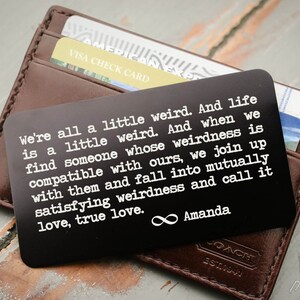 AMERICAN EXP
VISA CHECK CARD
We're all a little weird. And life
is a little weird. And when we
find someone whose weirdness is
compatible with ours, we join up
with them and fall into mutually
satisfying weirdness and call it
love, true love.
∞ Amanda
COACH